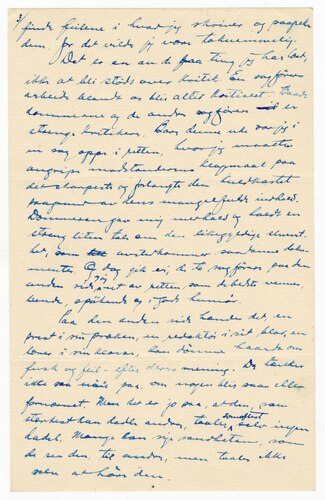 3/
finde feilene i hvad jeg skriver og paapeke
dem, for det vilde jeg være taknemmelig.
Det er en av de faa ting jeg har lært,
ikke at bli stødt over kritik. En sagførers
arbeide blandt os blir altid kritisert. Baade
dommerne og de andre sagfører er
strenge kritikere. Bare denne uke var jeg i
en sag oppe i retten, hvor jeg maatte
angripe motstanderens klagemaal paa
det skarpeste og forlangte den kuldkastet
paagrund av dens mangelfulde indhold.
Dommeren gav mig medhold og holdt en
streng liten tale om den likegyldige
het, som avstedkommer saadanne doku-
menter. Og dog gik vi, de to sagfører paa den
anden side, og jeg ut av retten som de bedste venner,
leende, spøkende og i godt humør.
Paa den anden side hænder det, en
prest i sin præken, en redaktør i sit blad, en
lærer i sin klasse, kan dømme haardt om
fusk og feil - efter deres mening. De tænker
ikke saa nøie paa, om nogen blir saaret eller
fornærmet. Men det er jo saa, at den, som
sterkest kan dadle andre, taaler somoftest selv ingen
dadel. Mange kan sige sandheten, som
de ser den, til andre, men taaler ikke
selv at høre den.